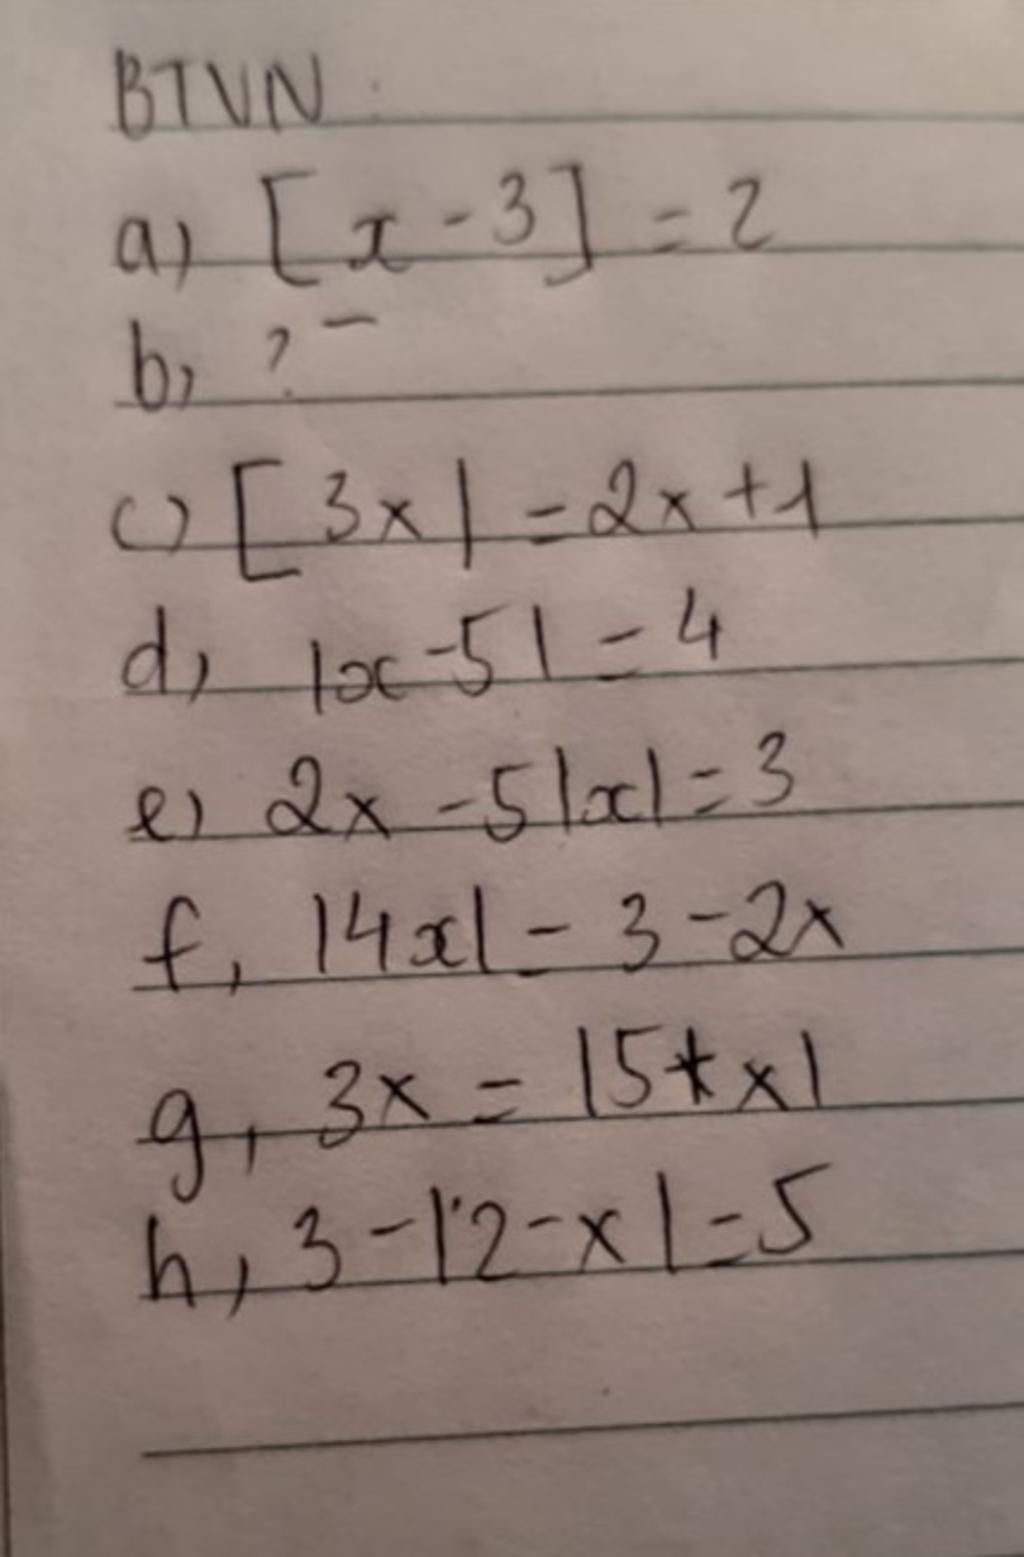 BTVN
a) [x - 3] = 2
b, ? -
c) [3x| = 2x + 1
d, |x - 5| = 4
e) 2x - 5|x| = 3
f, |4x| = 3 - 2x
g, 3x = |5 + x|
h, 3 - |2 - x| = 5